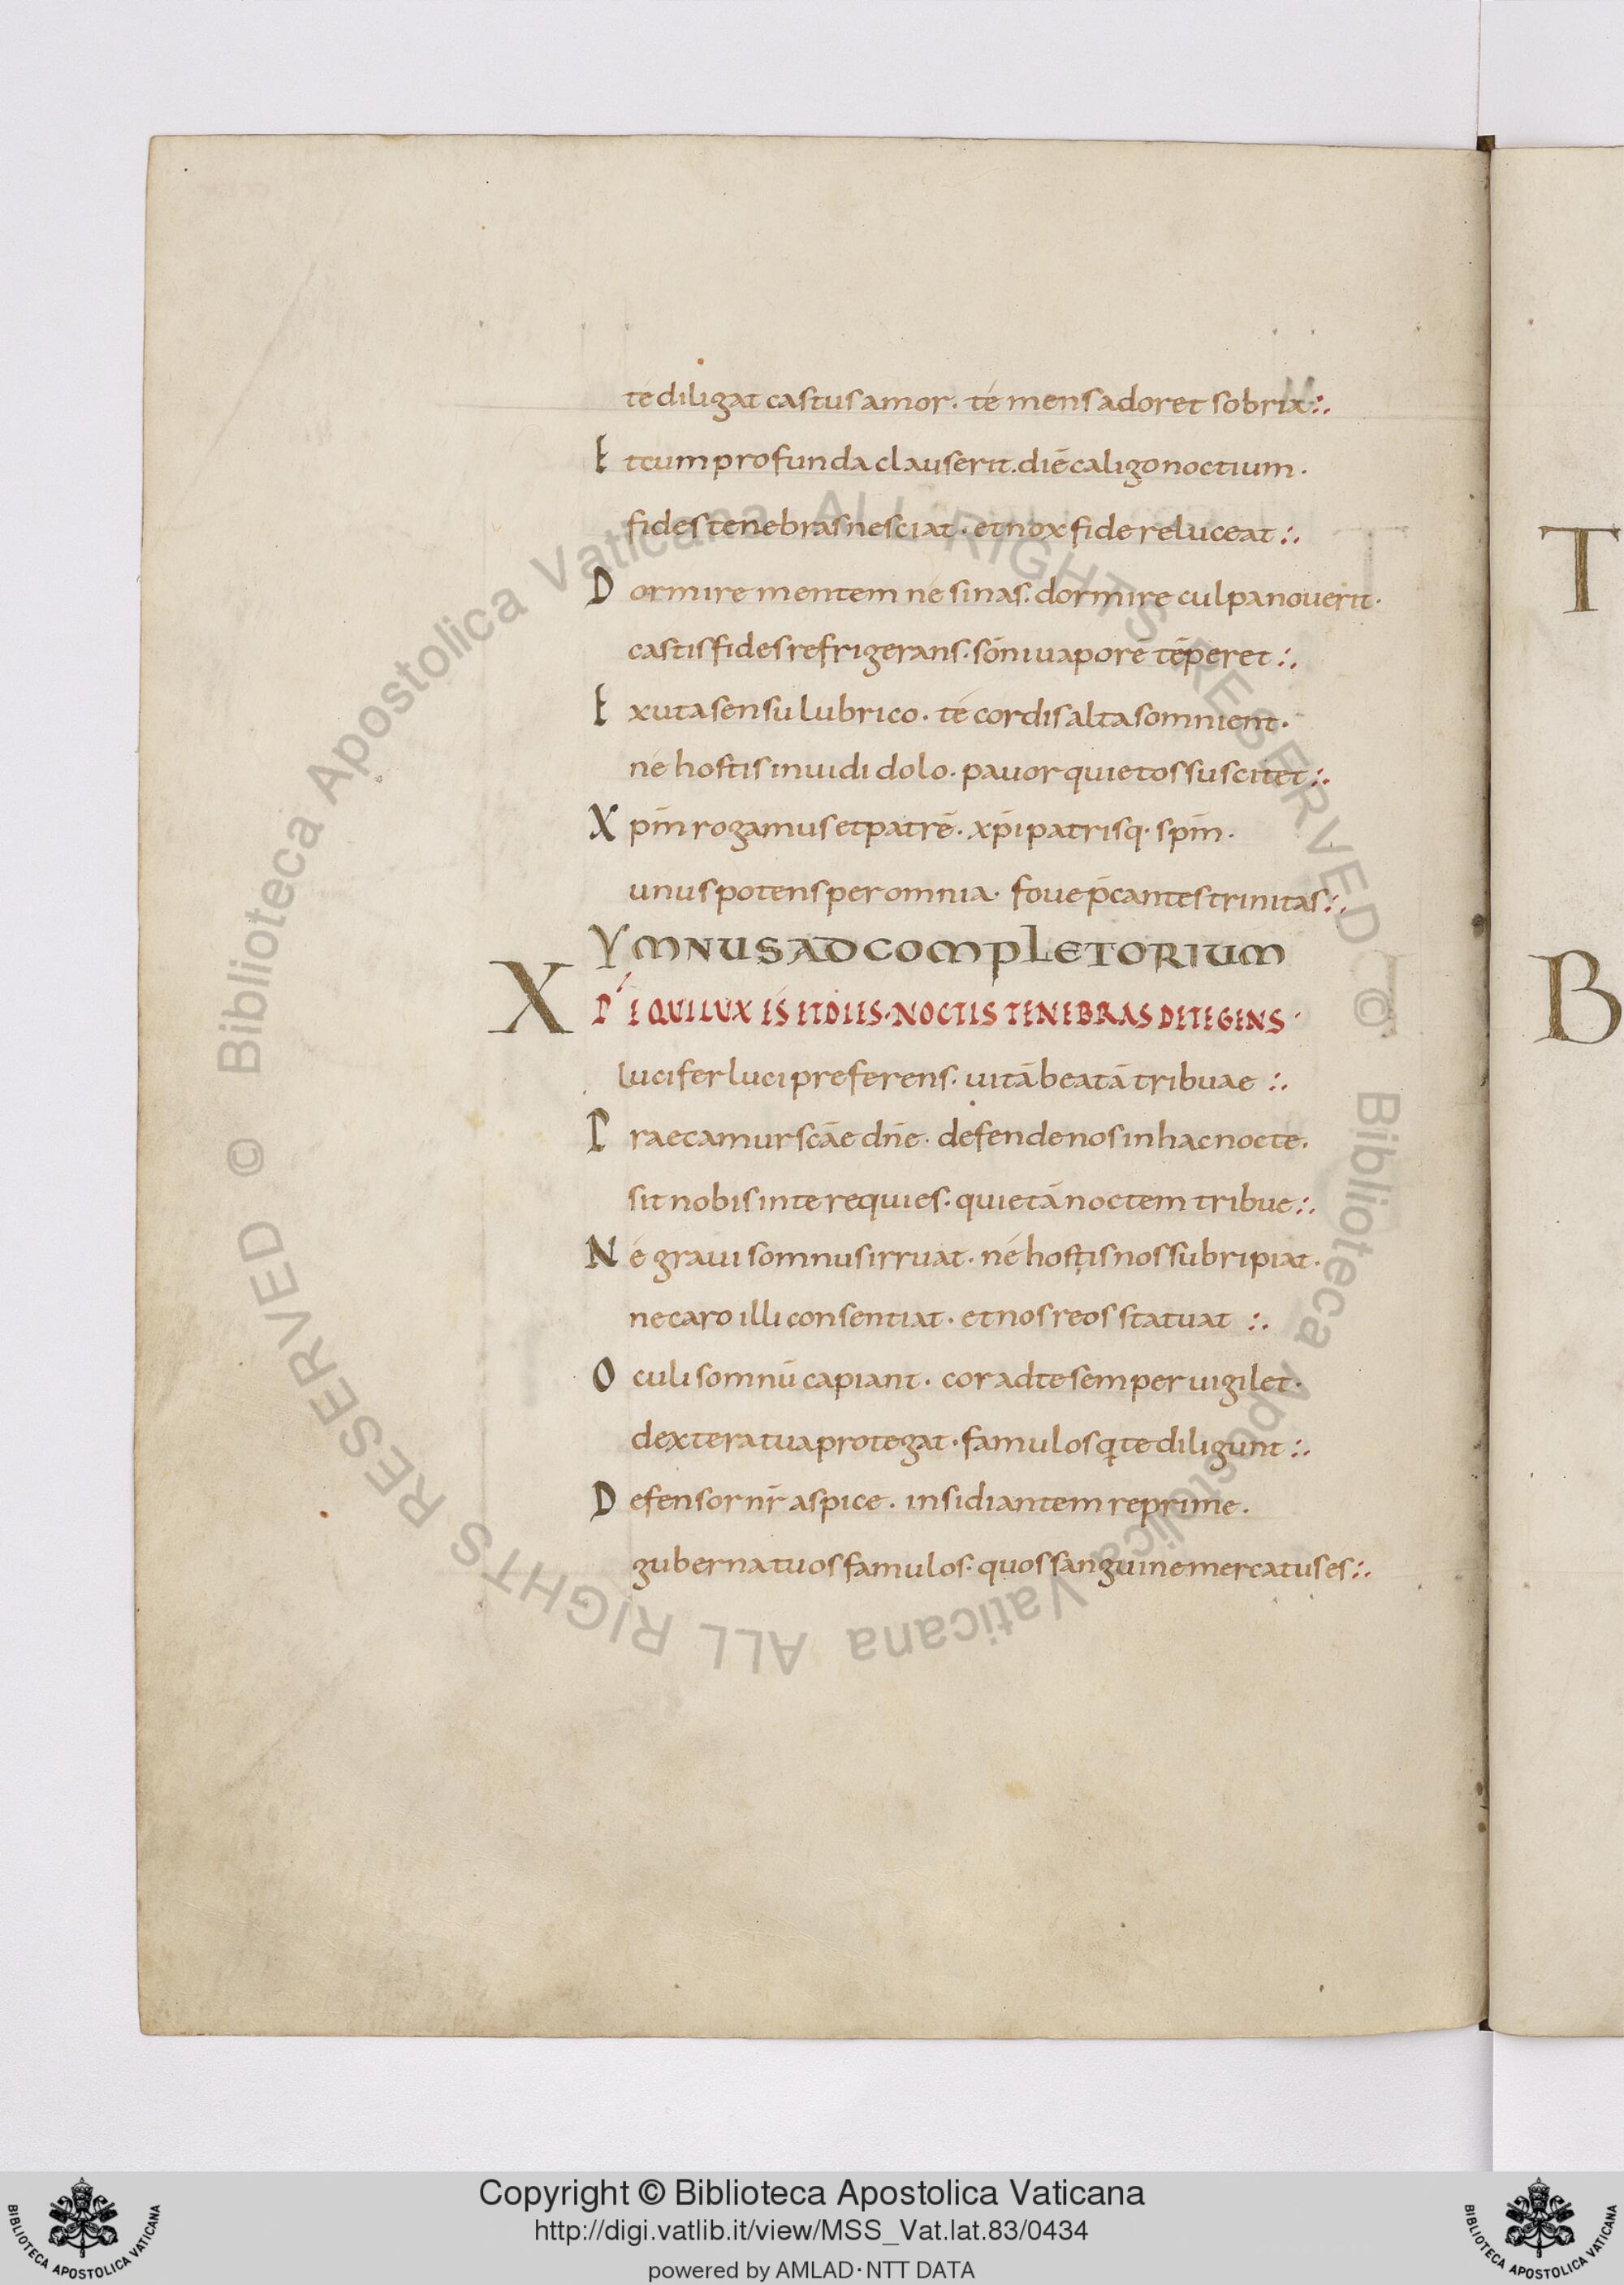 té diligat castus amor. té mens adoret sobria:.
Et cum profunda clauserit. diē caligo noctium.
fides tenebras nesciat. et nox fide reluceat:.
Dormire mentem né sinas. dormire culpa nouerit.
castis fides refrigerans. sōni uaporē tēperet:.
Exuta sensu lubrico. té cordis alta somnient.
né hostis inuidi dolo. pauor quietos suscitet:.
Xp̄m rogamus et patrē. xp̄i patrisq· sp̄m.
unus potens per omnia. foue p̄cantes trinitas:.
YMNUS AD COMPLETORIUM
XP̄E QUI LUX ES ET DIES. NOCTIS TENEBRAS DETEGENS.
lucifer luci preferens. uitā beatā tribuae:.
Praecamur scāe dn̄e. defende nos in hac nocte.
sit nobis in te requies. quietā noctem tribue:.
Né graui somnus irruat. né hostis nos subripiat.
ne caro illi consentiat. et nos reos statuat:.
Oculi somnū capiant. cor ad te semper uigilet.
dextera tua protegat. famulos q· te diligunt:.
Defensor nr̄ aspice. insidiantem reprime.
guberna tuos famulos. quos sanguine mercatus es:.
T
B
© Biblioteca Apostolica Vaticana ALL RIGHTS RESERVED © Biblioteca Apostolica Vaticana ALL RIGHTS RESERVED
Copyright © Biblioteca Apostolica Vaticana
http://digi.vatlib.it/view/MSS_Vat.lat.83/0434
powered by AMLAD·NTT DATA
BIBLIOTECA APOSTOLICA VATICANA
BIBLIOTECA APOSTOLICA VATICANA